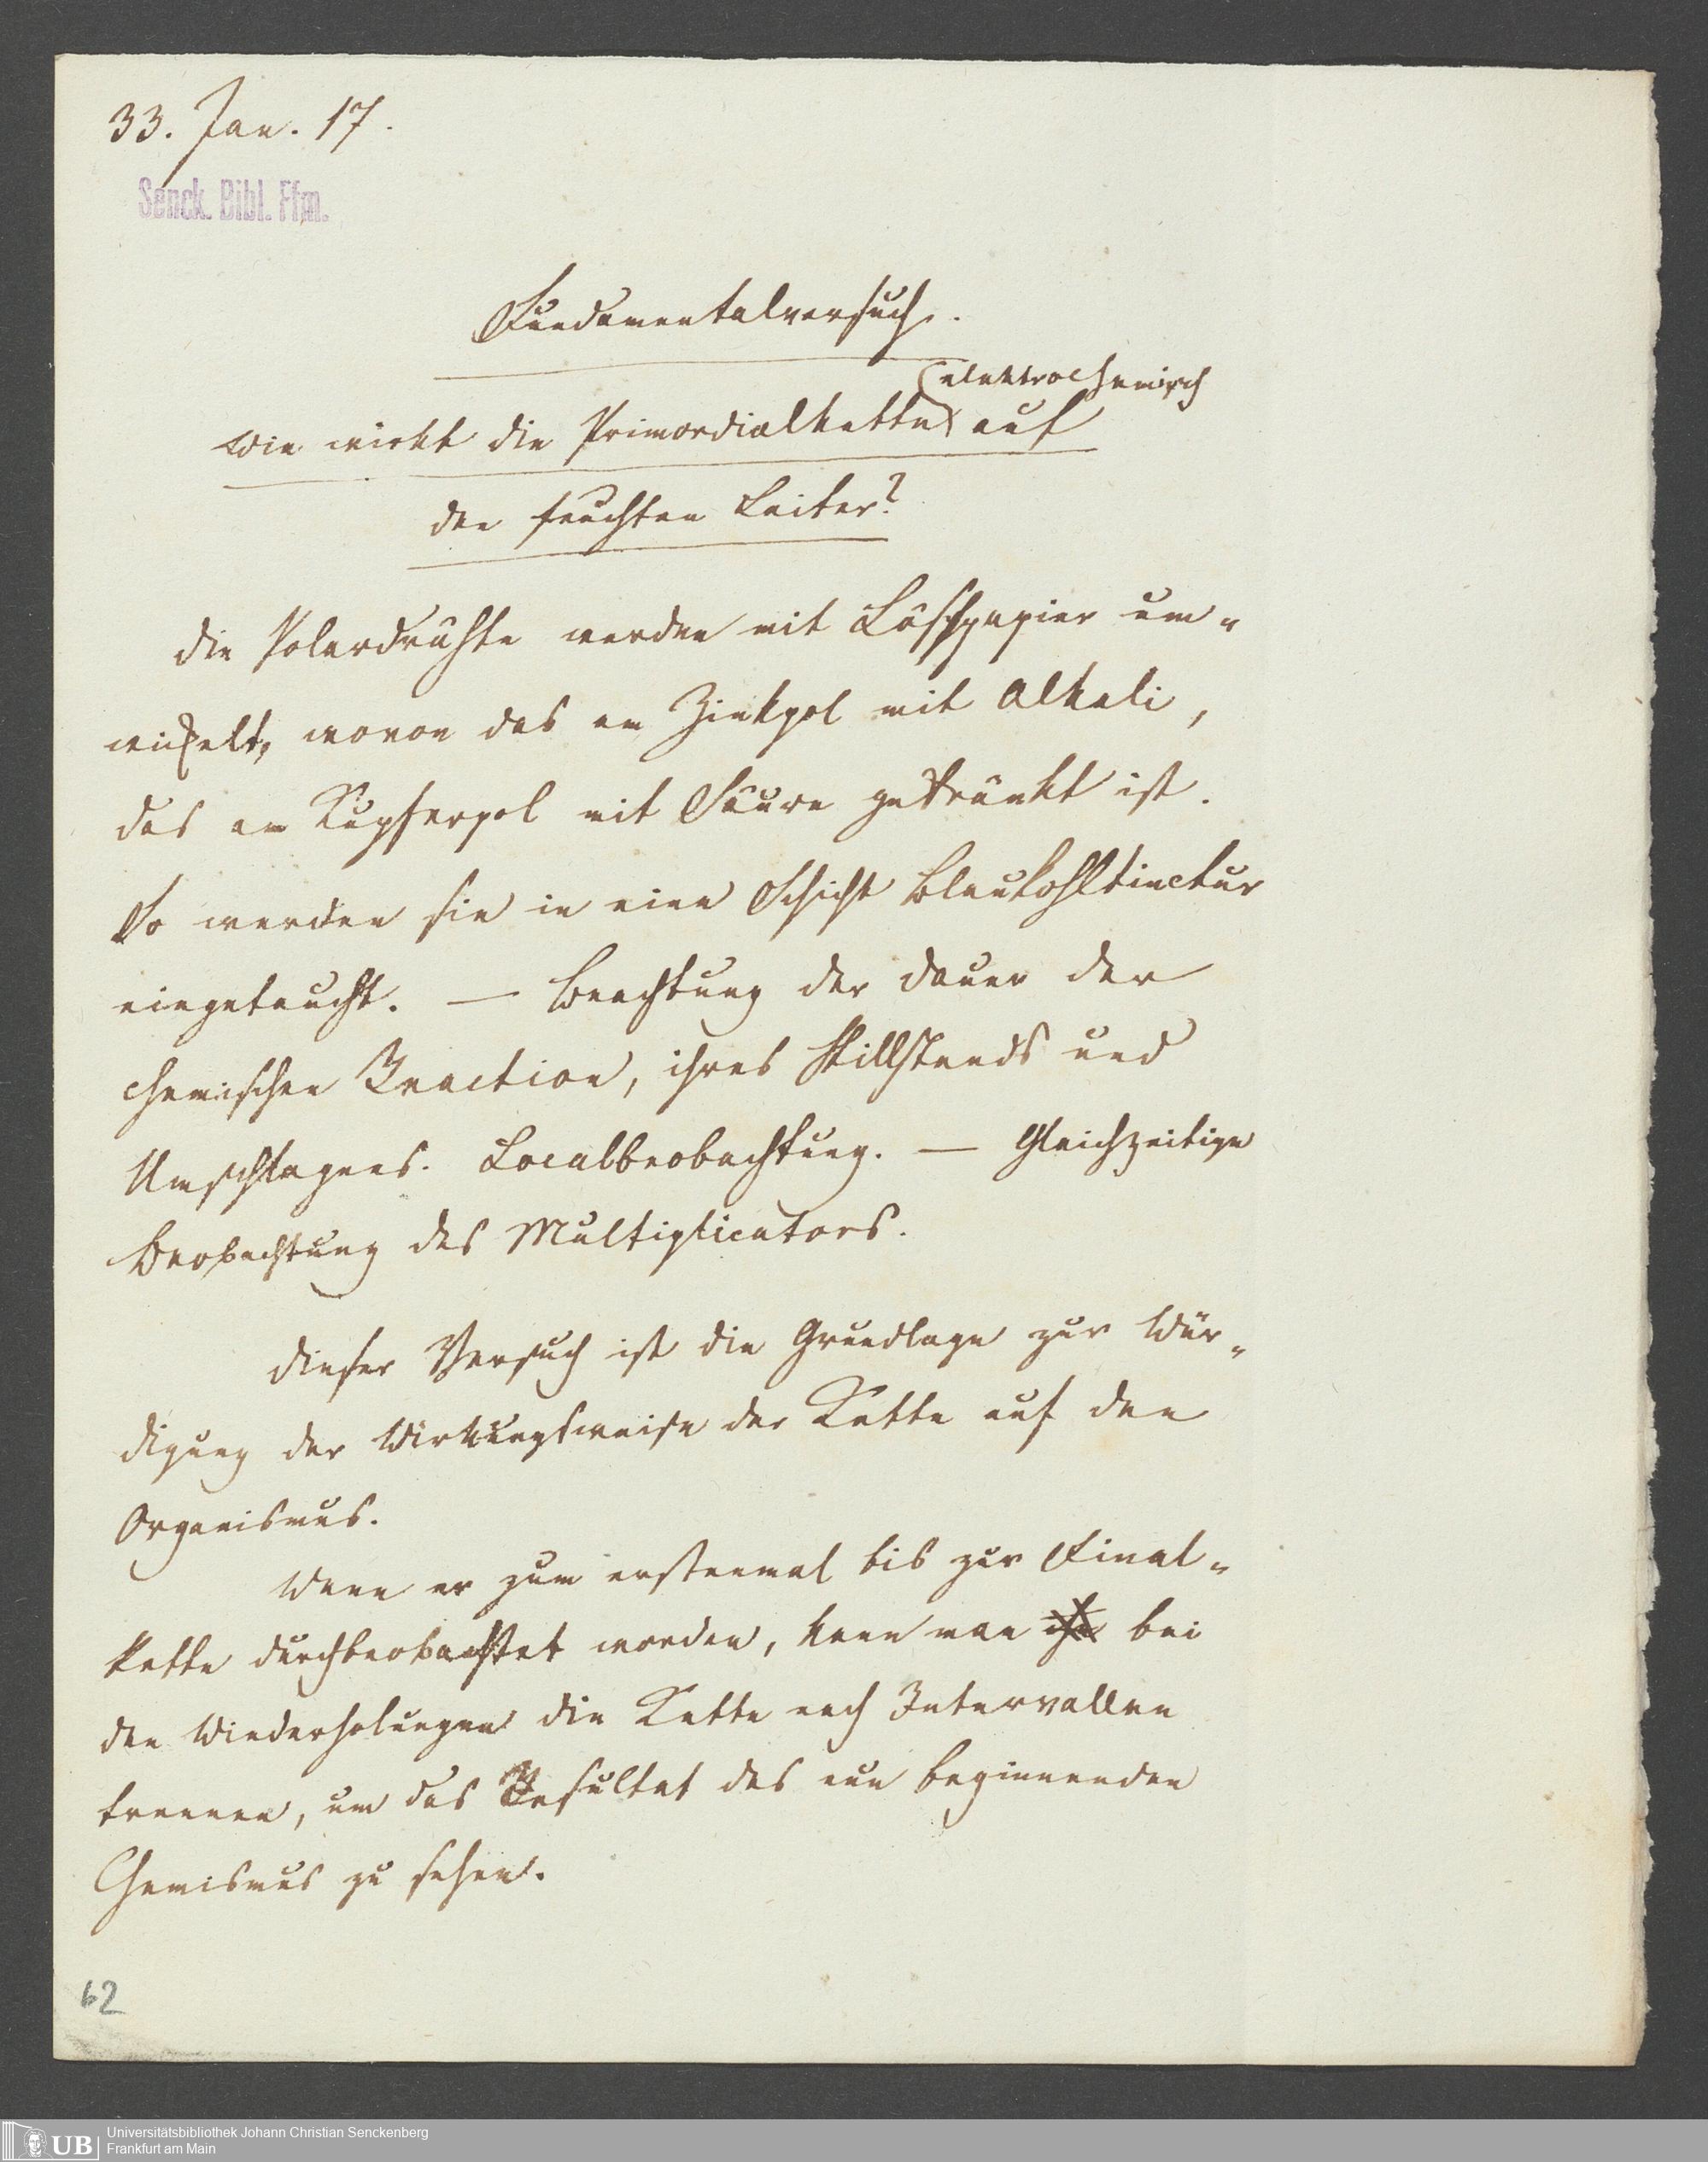 33. Jan. 17.
Senck. Bibl. Ffm.
Fundamentalversuch.
elektrochemisch
Wie wirkt die Primordialkette auf
den feuchten Leiter?
Die Polardrähte werden mit Löschpapier um-
wickelt, wovon das am Zinkpol mit Alkali,
das am Kupferpol mit Säure getränkt ist.
So werden sie in eine Schicht Blaukohltinctur
eingetaucht. — Beachtung der Dauer der
chemischen Reaction, ihres Stillstands und
Umschlagens. Localbeobachtung. — Gleichzeitige
Beobachtung des Multiplicators.
Dieser Versuch ist die Grundlage zur Wür-
digung der Wirkungsweise der Kette auf den
Organismus.
Wenn er zum erstenmal bis zur Final-
kette durchbeobachtet worden, kann man bei
den Wiederholungen die Kette nach Intervallen
trennen, um das Resultat des nun beginnenden
Chemismus zu sehen.
62
UB
Universitätsbibliothek Johann Christian Senckenberg
Frankfurt am Main